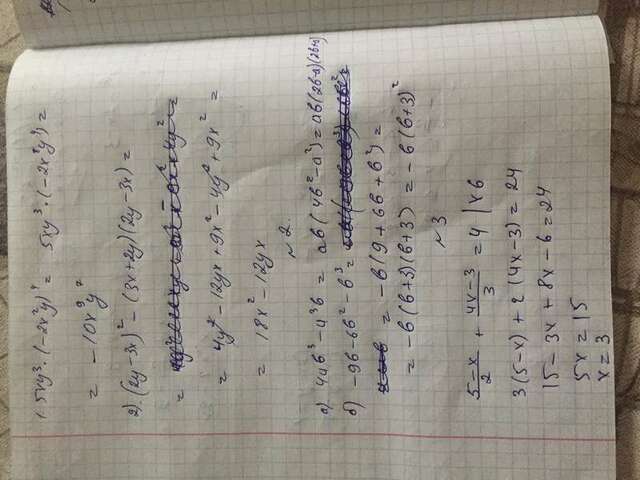 1. 5xy³ · (-2x²y)⁴ = 5xy³ · (-2x⁸y⁴) =
= -10x⁹y⁷
2). (2y-3x)² - (3x+2y)(2y-3x) =
=
= 4y² - 12yx + 9x² - 4y² + 9x² =
= 18x² - 12yx
№2.
а) 4ab³ - a³b = ab(4b² - a²) = ab(2b-a)(2b+a)
б) -9b - 6b² - b³ =
= -b(9 + 6b + b²) =
= -b(b+3)(b+3) = -b(b+3)²
№3
5-x/2 + 4x-3/3 = 4 | x6
3(5-x) + 2(4x-3) = 24
15 - 3x + 8x - 6 = 24
5x = 15
x = 3